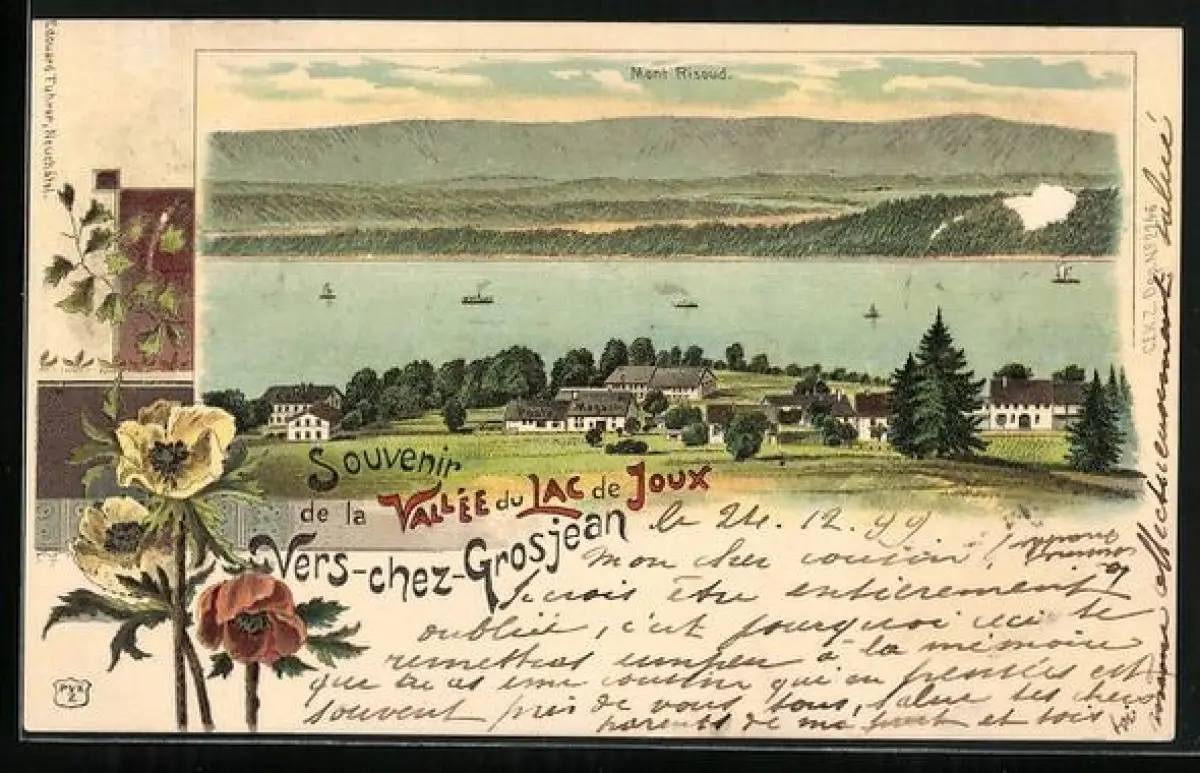 Edouard Fuhrer, Neuchâtel.
Mont Risoud.
Poste Magasin
Souvenir
de la VALLÉE du LAC de JOUX
Vers-chez-Grosjean
le 24. 12. 99
Mon cher cousin!
Je crois être entièrement
oubliée, c'est pourquoi ceci te
remettras un peu à la mémoire
que tu as une cousine qui en pensées est
souvent près de vous tous, salue tes chers
parents de ma part et sois
affectueusement salué